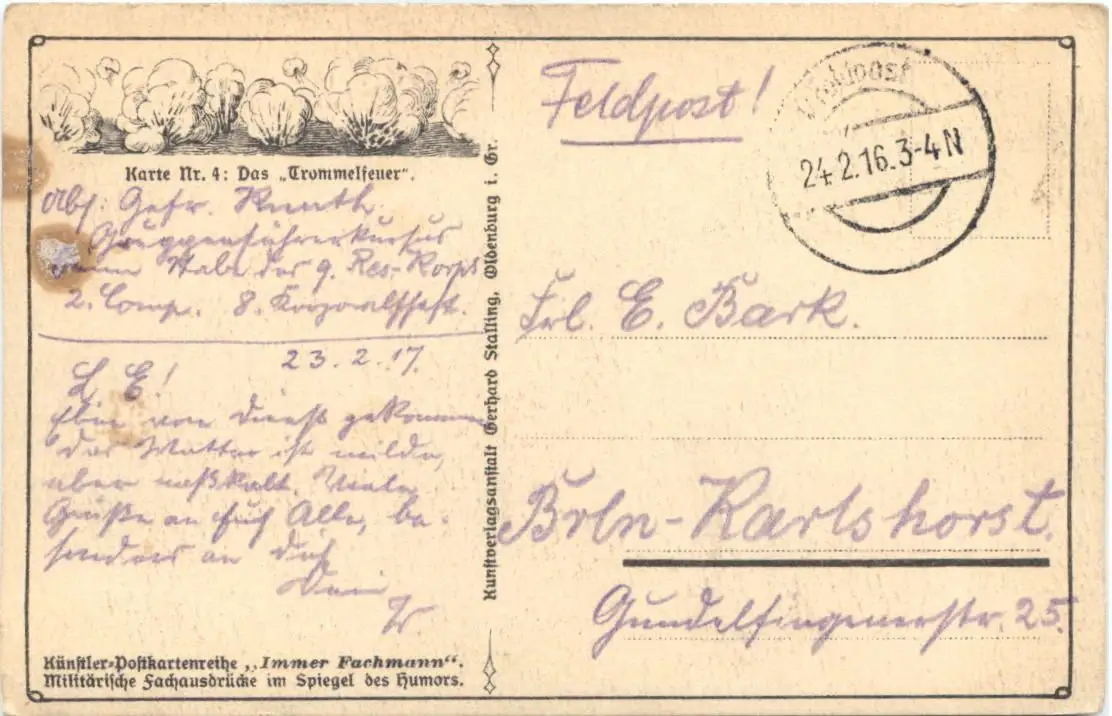 Karte Nr. 4: Das „Trommelfeuer".
Abs: Gefr. Knuth
Gruppenführerkursus
beim Stabe des 9. Res-Korps
2. Comp. 8. Korporalschaft.
23.2.17.
L. E!
Bin vom Dienst gekommen
das Wetter ist milde,
aber naßkalt. Viele
Grüße an Euch Alle, be-
sonders an Dich
Dein
Künstler-Postkartenreihe „Immer Fachmann".
Militärische Fachausdrücke im Spiegel des Humors.
Kunstverlagsanstalt Gerhard Stalling, Oldenburg i. Gr.
Feldpost!
Feldpost
24.2.16.3-4N
Frl. E. Bark.
Brln-Karlshorst.
Gundelfingenerstr. 25.